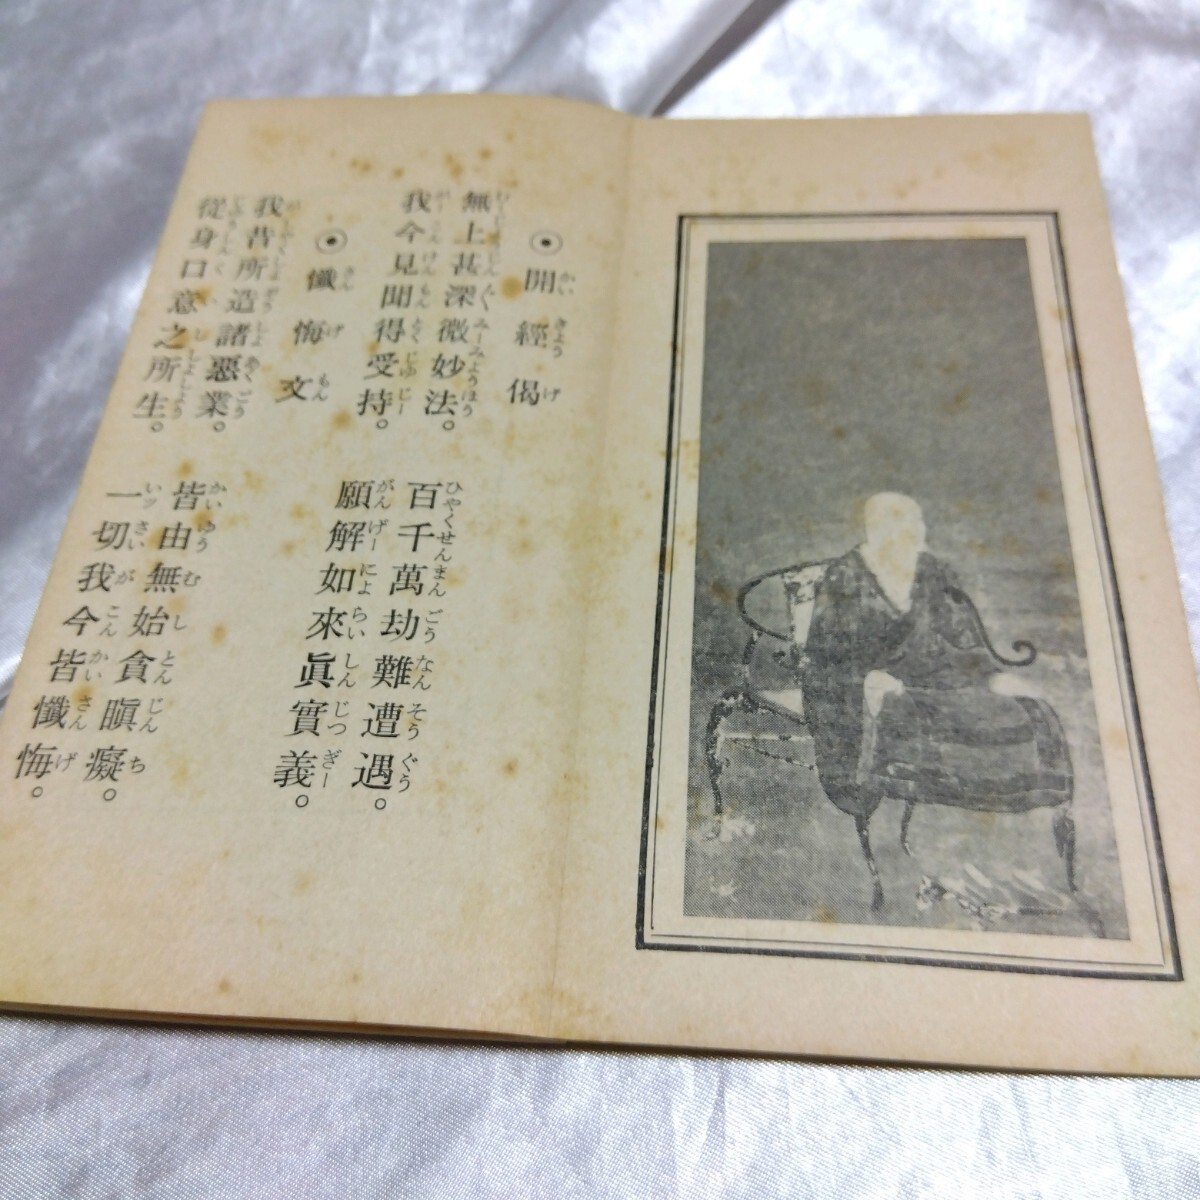 ◉開經偈
無上甚深微妙法。百千萬劫難遭遇。
我今見聞得受持。願解如來眞實義。
◉懺悔文
我昔所造諸惡業。皆由無始貪瞋癡。
從身口意之所生。一切我今皆懺悔。